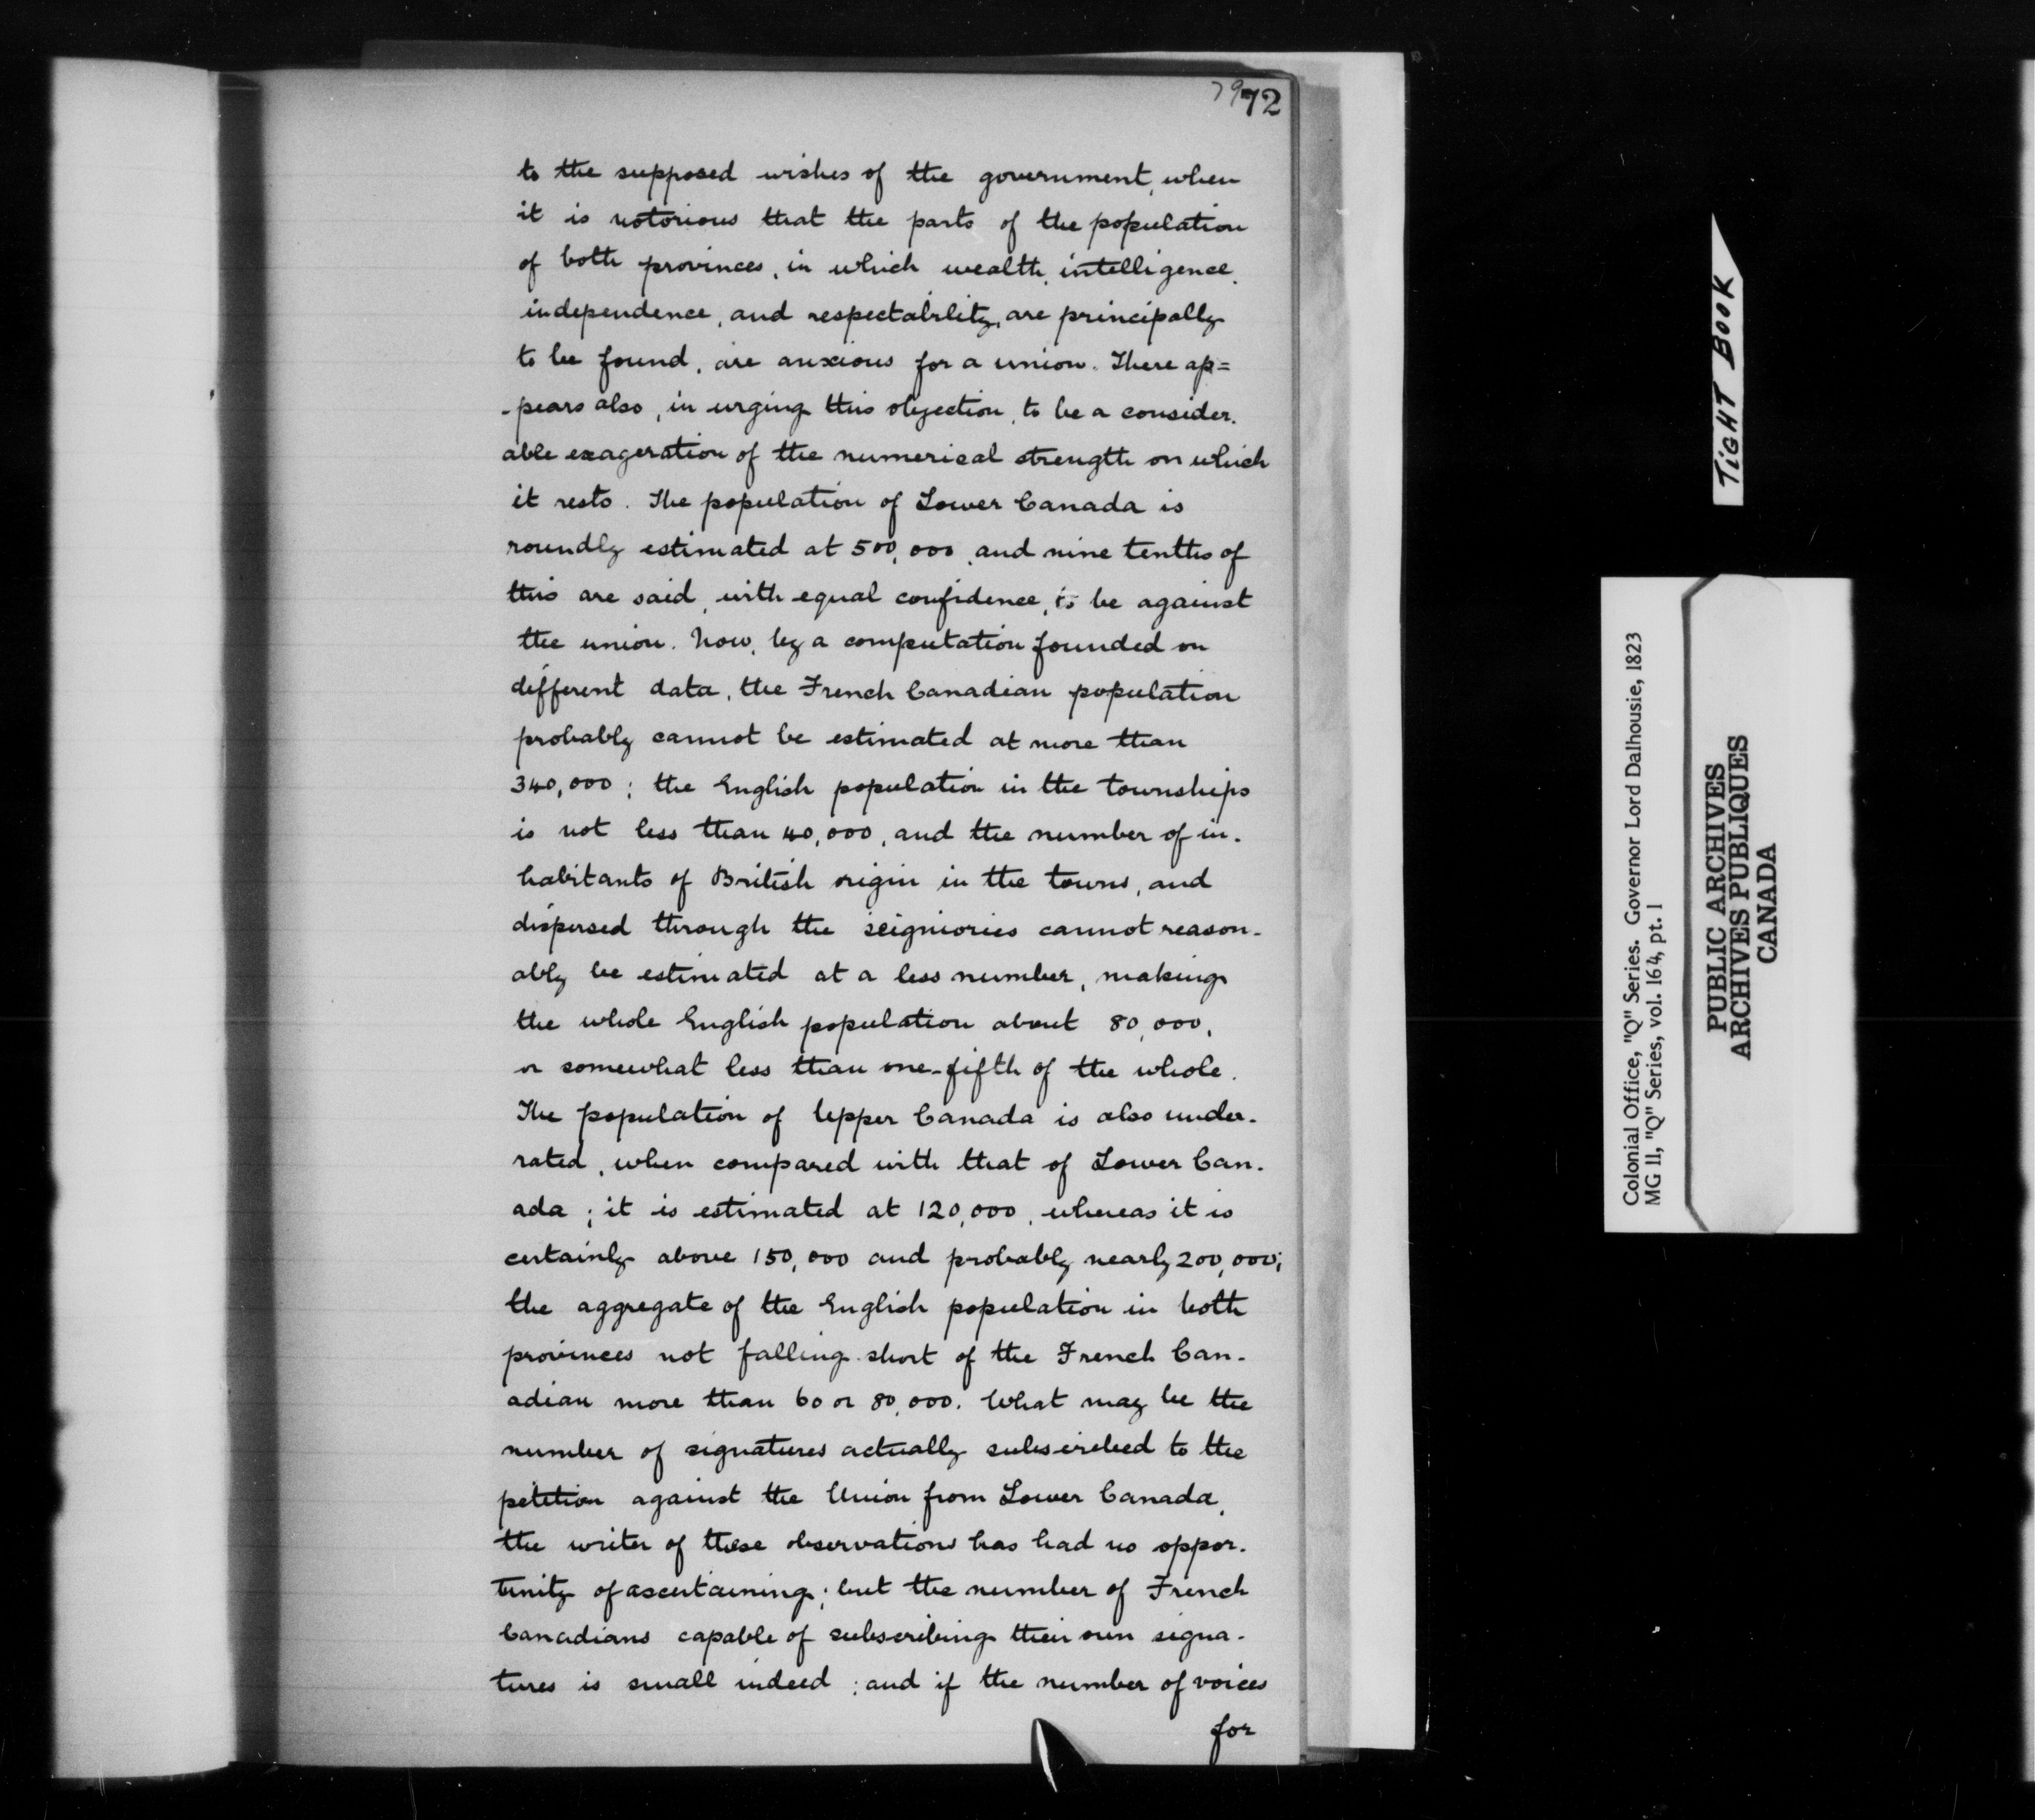 79 72
to the supposed wishes of the government, when
it is notorious that the parts of the population
of both provinces, in which wealth, intelligence,
independence, and respectability, are principally
to be found, are anxious for a union. There ap=
-pears also, in urging this objection, to be a consider-
able exageration of the numerical strength on which
it rests. The population of Lower Canada is
roundly estimated at 500,000, and nine tenths of
this are said, with equal confidence, to be against
the union. Now, by a computation founded on
different data, the French Canadian population
probably cannot be estimated at more than
340,000; the English population in the townships
is not less than 40,000, and the number of in-
habitants of British origin in the towns, and
dispersed through the seigniories cannot reason-
ably be estimated at a less number, making
the whole English population about 80,000,
or somewhat less than one-fifth of the whole.
The population of Upper Canada is also under-
rated, when compared with that of Lower Can-
ada; it is estimated at 120,000, whereas it is
certainly above 150,000 and probably nearly 200,000;
the aggregate of the English population in both
provinces not falling short of the French Can-
adian more than 60 or 80,000. What may be the
number of signatures actually subscribed to the
petition against the Union from Lower Canada,
the writer of these observations has had no oppor-
tunity of ascertaining; but the number of French
Canadians capable of subscribing their own signa-
tures is small indeed; and if the number of voices
for
TIGHT BOOK
Colonial Office, "Q" Series. Governor Lord Dalhousie, 1823
MG 11, "Q" Series, vol. 164, pt. 1
PUBLIC ARCHIVES
ARCHIVES PUBLIQUES
CANADA